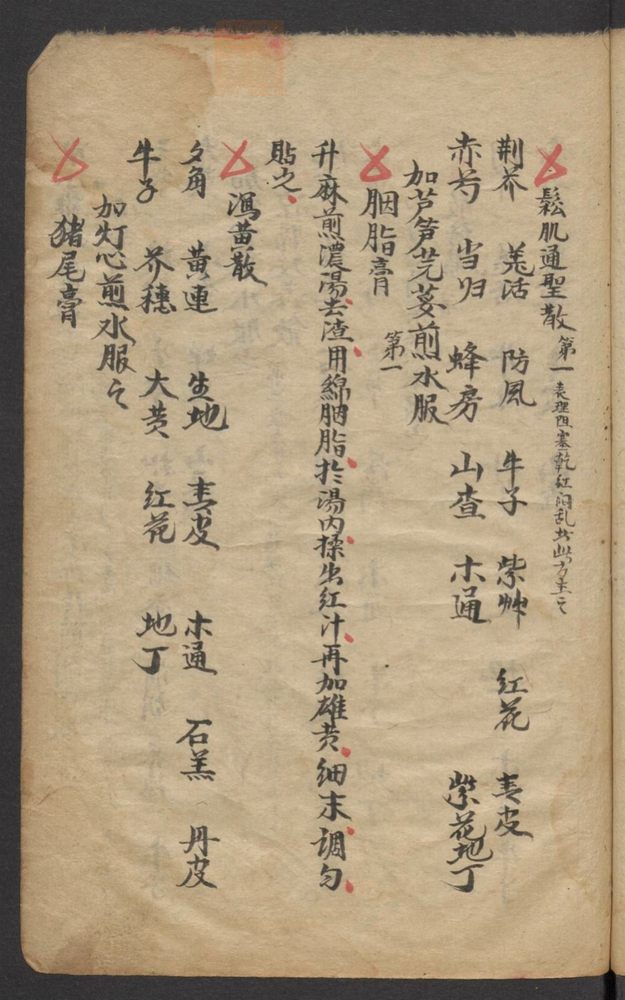 鬆肌通聖散 第一 表裡阻塞乾紅悶乱者此方主之
荆芥 羗活 防風 牛子 紫艸 红花 青皮
赤芍 当归 蜂房 山查 木通 紫花地丁
加芦笋芫荽煎水服
胭脂膏 第一
升麻煎濃湯去渣用綿胭脂扵湯内揉出红汁再加雄黄细末調匀
貼之
瀉黄散
夕角 黄連 生地 青皮 木通 石羔 丹皮
牛子 芥穗 大黄 红花 地丁
加灯心煎水服之
猪尾膏